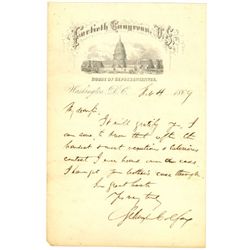 Fortieth Congress, U.S.
HOUSE OF REPRESENTATIVES,
Washington, D.C. Feb 4 1869
My dear
It will gratify you I
am sure to know that after the
hardest & most & laborious
contest I ever had over the case,
I have got your brother's case through
In great haste
Yrs truly
Schuyler Colfax